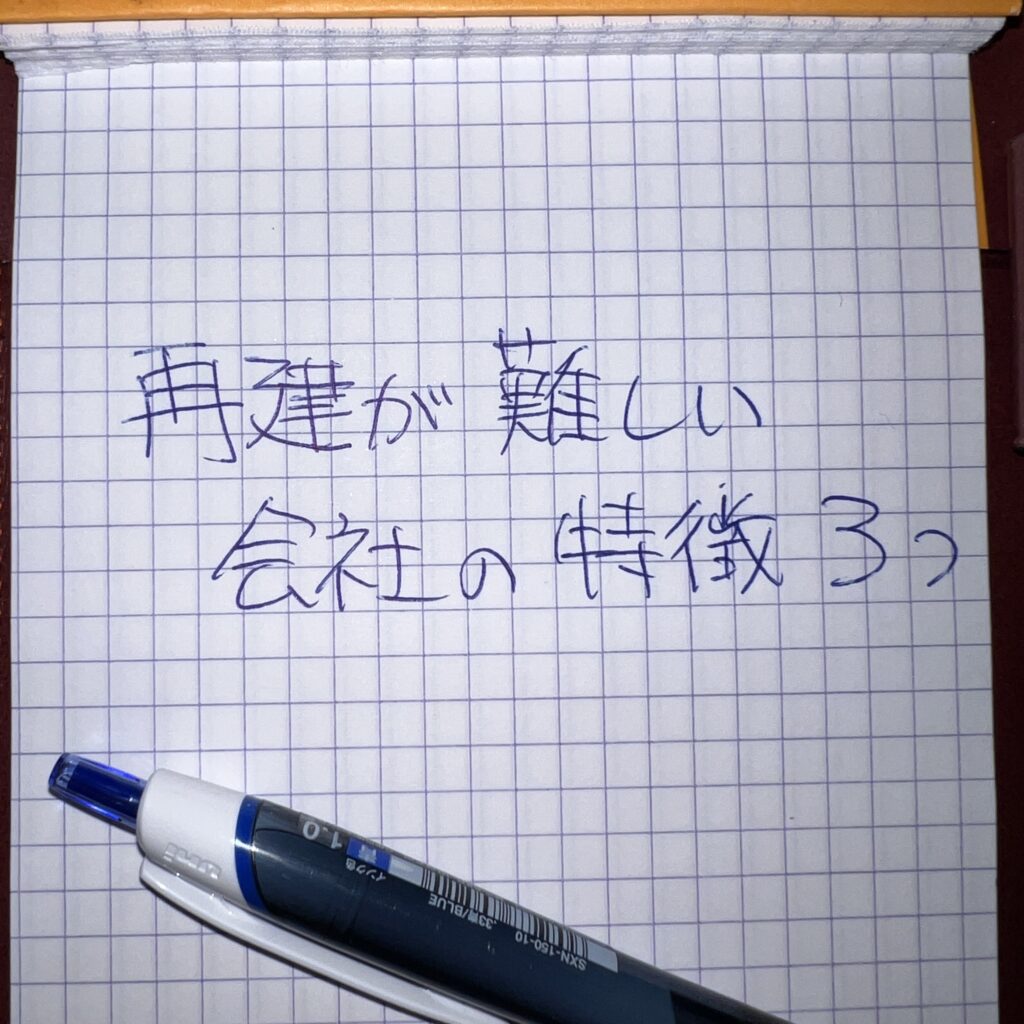 再建が難しい
会社の特徴3つ
uni
1.0
インク色 青
.33青/BLUE
SXN-150-10